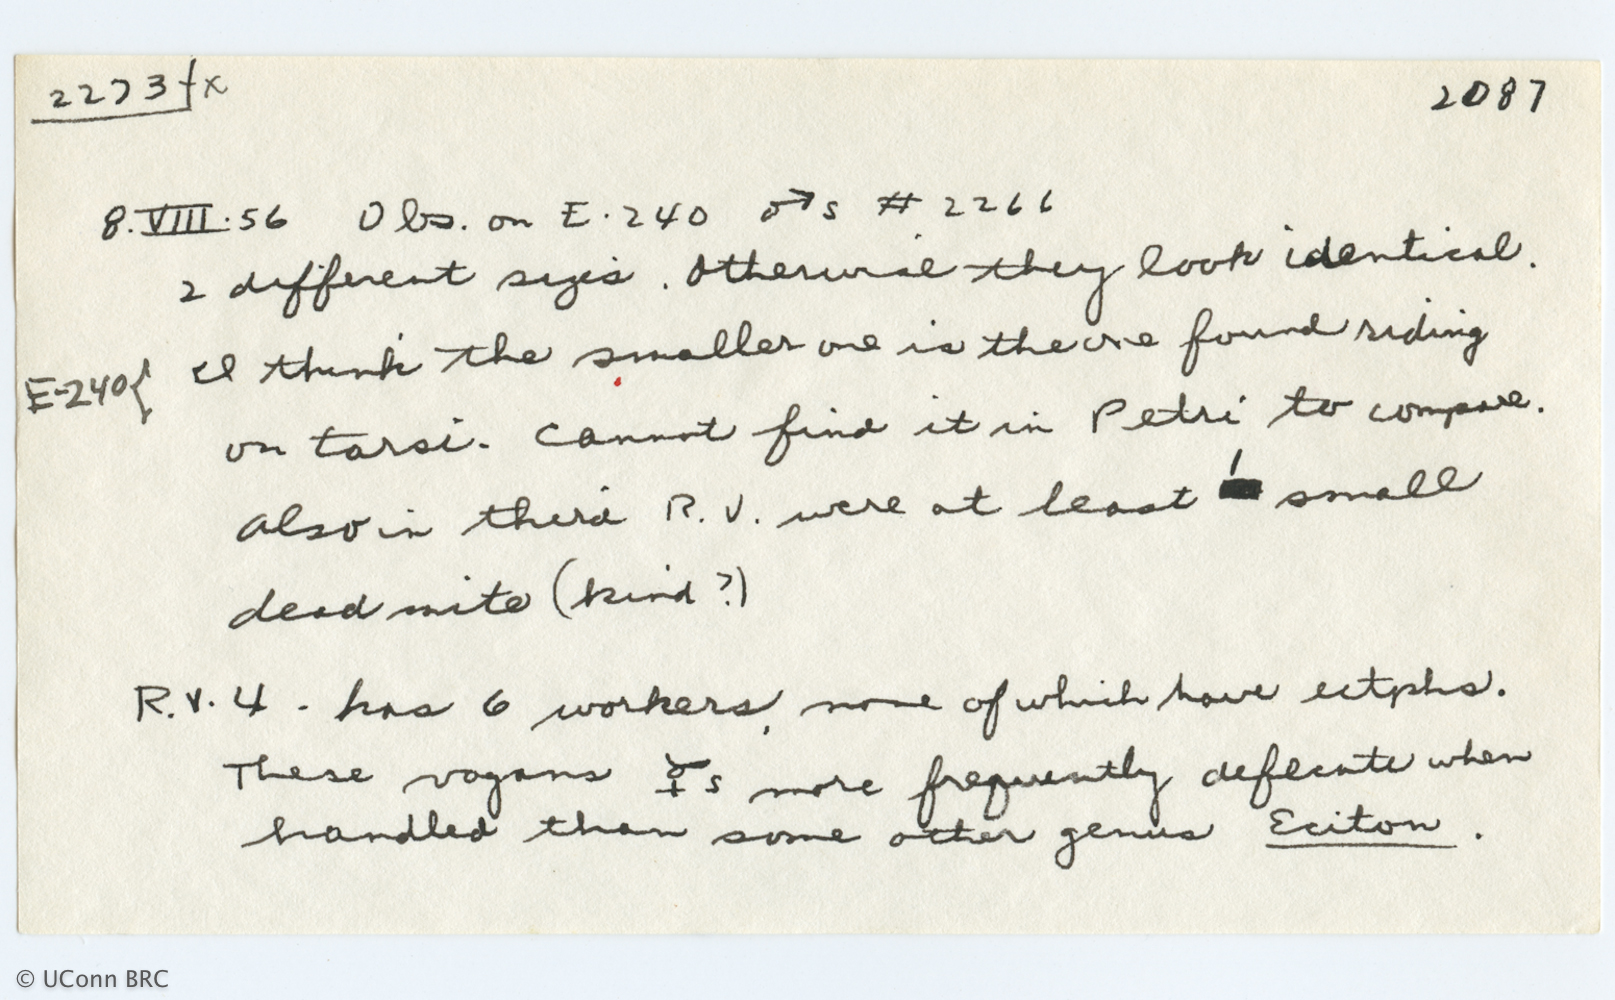 2273fx
2087
8.VIII.56 Obs. on E.240 ♂s # 2266
2 different sizes. Otherwise they look identical.
E-240{ I think the smaller one is the one found riding
on tarsi. Cannot find it in Petri to compare.
Also in third R.V. were at least 1 small
dead mite (kind?)
R.V. 4 - has 6 workers, none of which have ectphs.
These vagans ☿s more frequently defecate when
handled than some other genus Eciton.
© UConn BRC